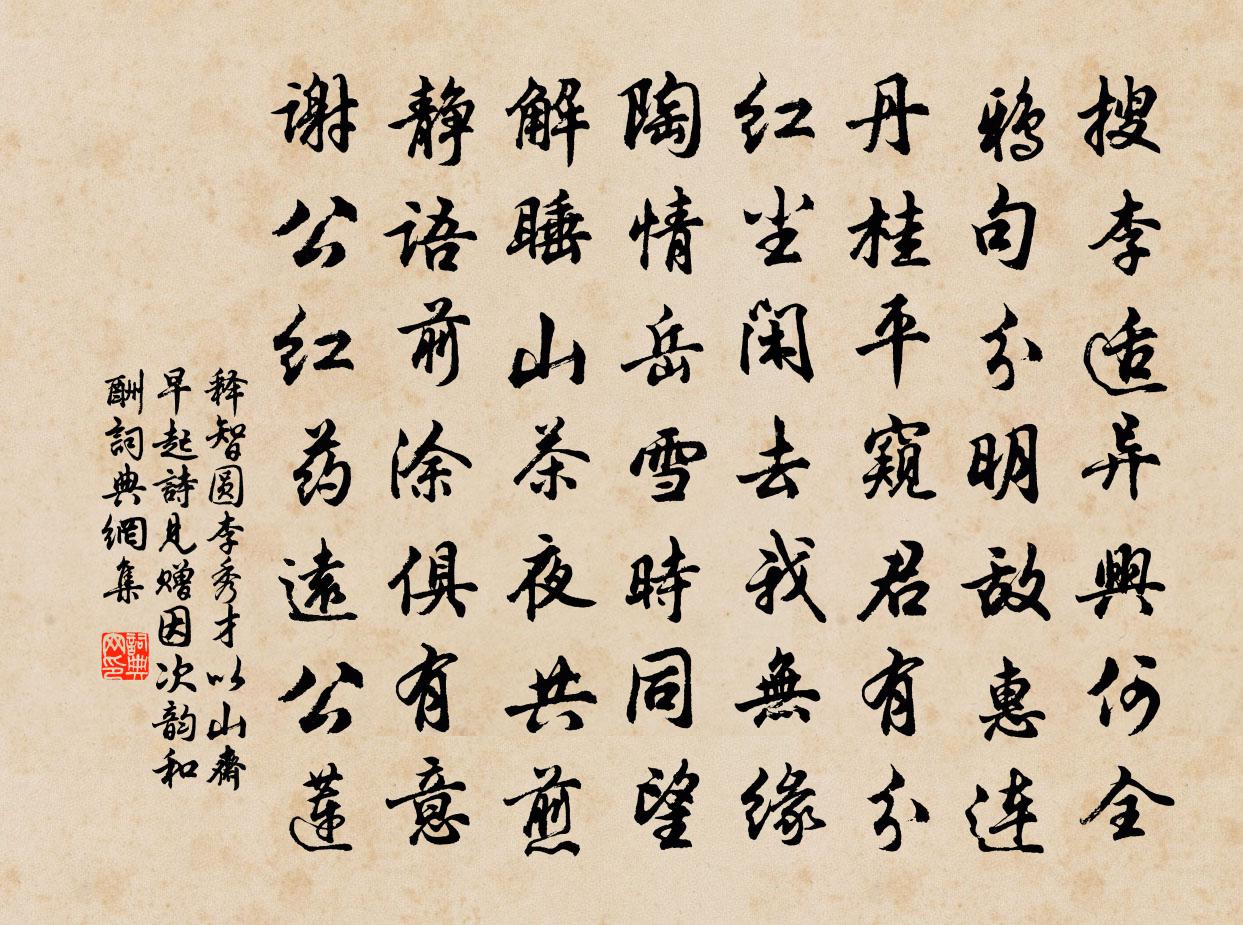 搜李适异興何全
鸦句分明敌惠连
丹桂平窥君有分
红尘闲去我無缘
陶情岳雪時同望
解睡山茶夜共煎
静语前涂俱有意
谢公红药遠公蓮
释智圆李秀才以山齋
早起詩見赠因次韵和
酬詞典網集
詞典网印